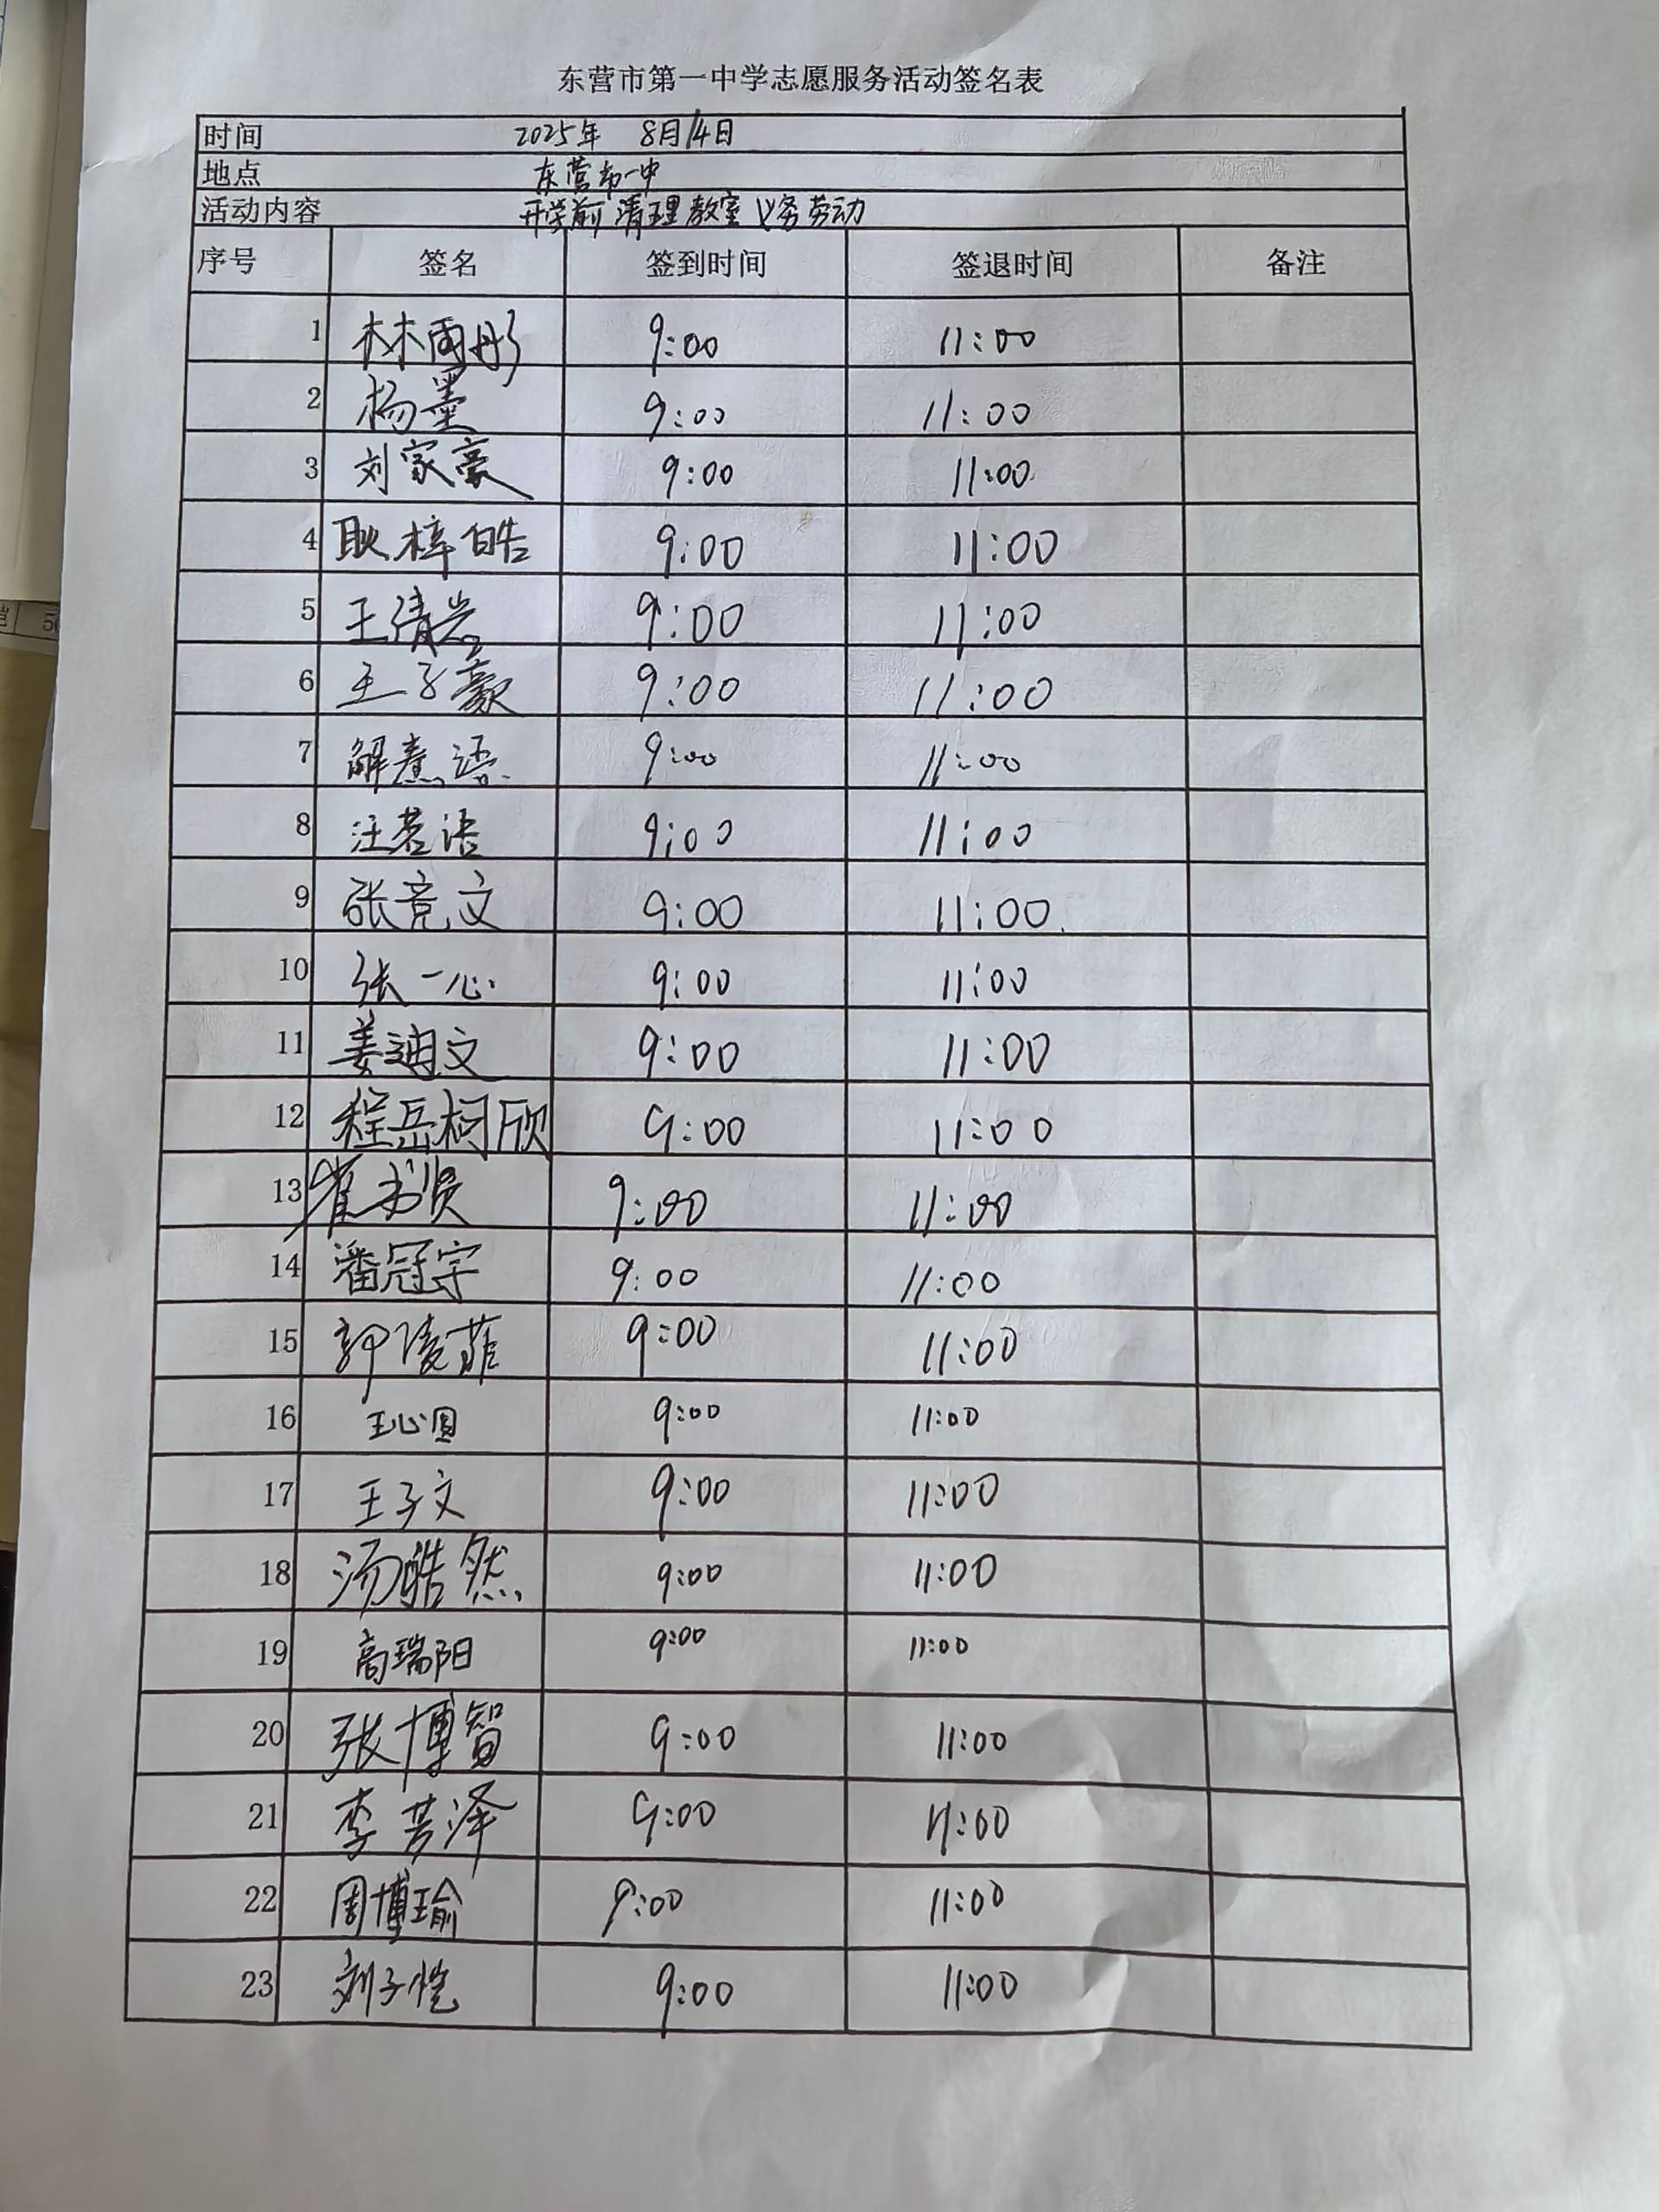 东营市第一中学志愿服务活动签名表
时间 2025年 8月14日
地点 东营市一中
活动内容 开学前清理教室义务劳动
序号 签名 签到时间 签退时间 备注
1 林雨彤 9:00 11:00
2 杨墨 9:00 11:00
3 刘家豪 9:00 11:00
4 耿梓皓 9:00 11:00
5 王清岩 9:00 11:00
6 王子豪 9:00 11:00
7 解熹语 9:00 11:00
8 汪若语 9:00 11:00
9 张竞文 9:00 11:00
10 张一心 9:00 11:00
11 姜迪文 9:00 11:00
12 程岳柯欣 9:00 11:00
13 崔书贤 9:00 11:00
14 潘冠宇 9:00 11:00
15 郭凌菲 9:00 11:00
16 王心圆 9:00 11:00
17 王子文 9:00 11:00
18 汤皓然 9:00 11:00
19 高瑞阳 9:00 11:00
20 张博智 9:00 11:00
21 李芳泽 9:00 11:00
22 周博瑜 9:00 11:00
23 刘子恺 9:00 11:00